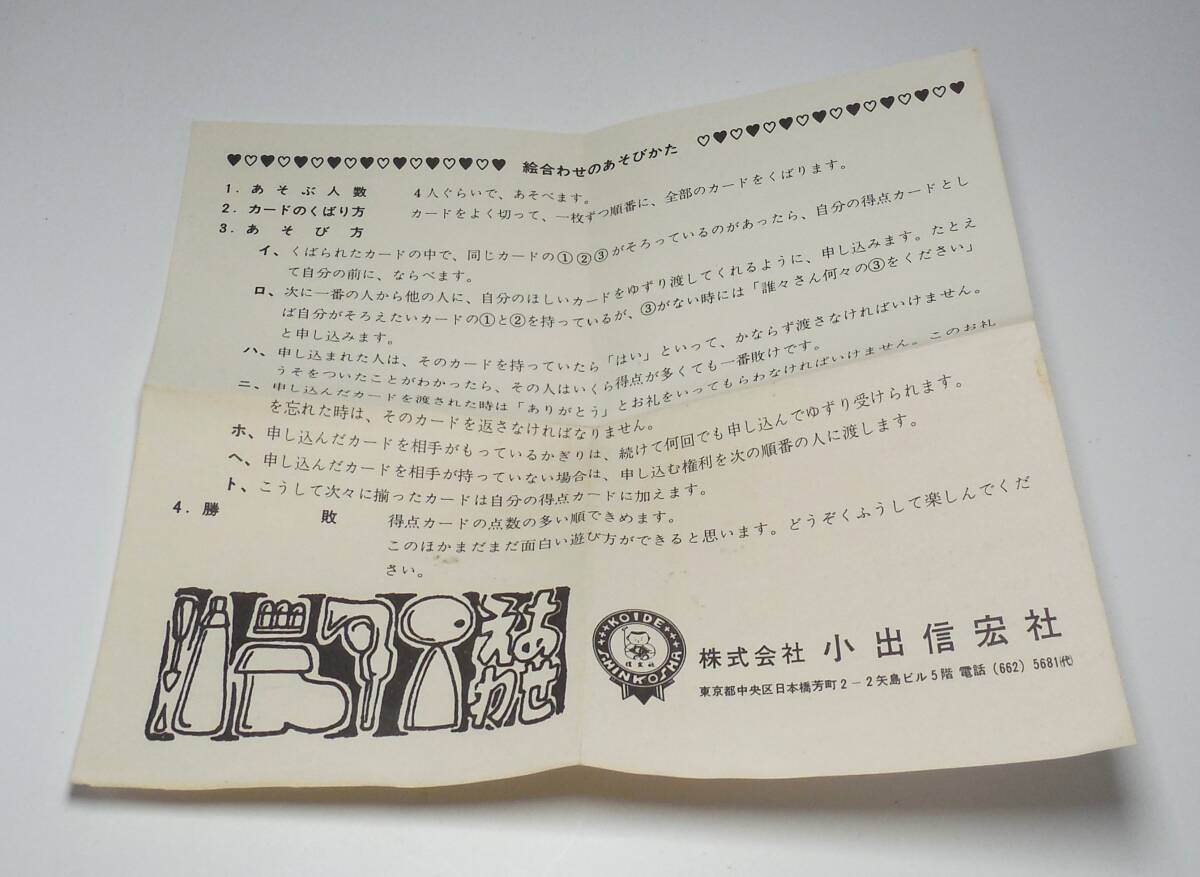 ♥♡♥♡♥♡♥♡♥♡♥♡♥♡♥♡♥ 絵合わせのあそびかた ♡♥♡♥♡♥♡♥♡♥♡♥♡♥♡♥
1. あそぶ人数 4人ぐらいで、あそべます。
2. カードのくばり方 カードをよく切って、一枚ずつ順番に、全部のカードをくばります。
3. あそび方
イ、くばられたカードの中で、同じカードの①②③がそろっているのがあったら、自分の得点カードとし
て自分の前に、ならべます。
ロ、次に一番の人から他の人に、自分のほしいカードをゆずり渡してくれるように、申し込みます。たとえ
ば自分がそろえたいカードの①と②を持っているが、③がない時には「誰々さん何々の③をください」
と申し込みます。
ハ、申し込まれた人は、そのカードを持っていたら「はい」といって、かならず渡さなければいけません。
うそをついたことがわかったら、その人はいくら得点が多くても一番敗けです。
ニ、申し込んだカードを渡された時は「ありがとう」とお礼をいってもらわなければいけません。このお礼
を忘れた時は、そのカードを返さなければなりません。
ホ、申し込んだカードを相手がもっているかぎりは、続けて何回でも申し込んでゆずり受けられます。
ヘ、申し込んだカードを相手が持っていない場合は、申し込む権利を次の順番の人に渡します。
ト、こうして次々に揃ったカードは自分の得点カードに加えます。
4. 勝敗 得点カードの点数の多い順できめます。
このほかまだまだ面白い遊び方ができると思います。どうぞくふうして楽しんでくだ
さい。
えあわせ
KOIDE
SHINKOSHA
信宏社
株式会社 小出信宏社
東京都中央区日本橋芳町2-2矢島ビル5階 電話(662)5681(代)